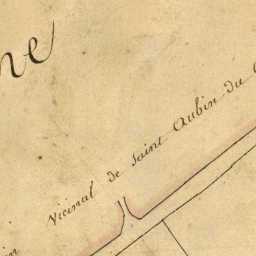 ne
Vicinal de Saint Aubin du
in